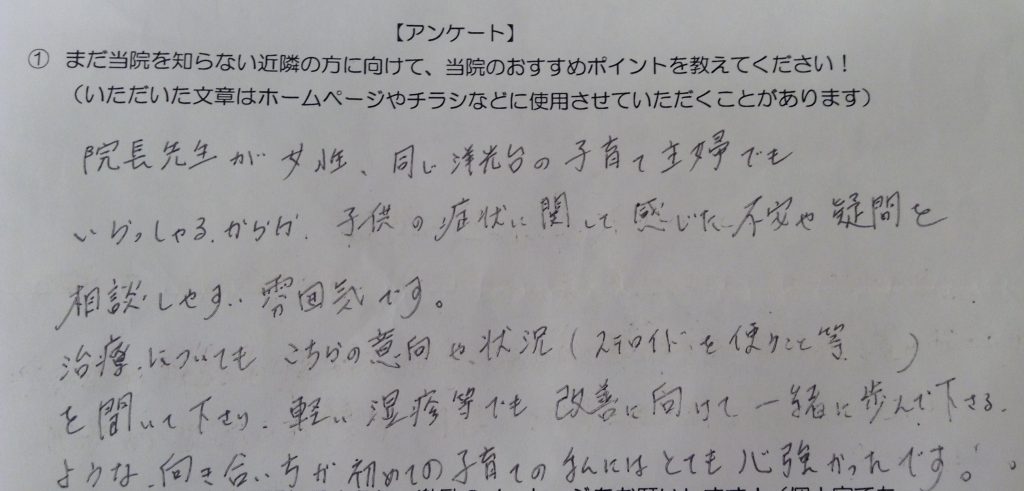 【アンケート】
① まだ当院を知らない近隣の方に向けて、当院のおすすめポイントを教えてください！
（いただいた文章はホームページやチラシなどに使用させていただくことがあります）
院長先生が女性、同じ洋光台の子育て主婦でも
いらっしゃるからか、子供の症状に関して感じた不安や疑問を
相談しやすい雰囲気です。
治療についてもこちらの意向や状況（ステロイドを使うこと等）
を聞いて下さり、軽い湿疹等でも改善に向けて一緒に歩んで下さる
ような向き合い方が初めての子育ての私にはとても心強かったです。